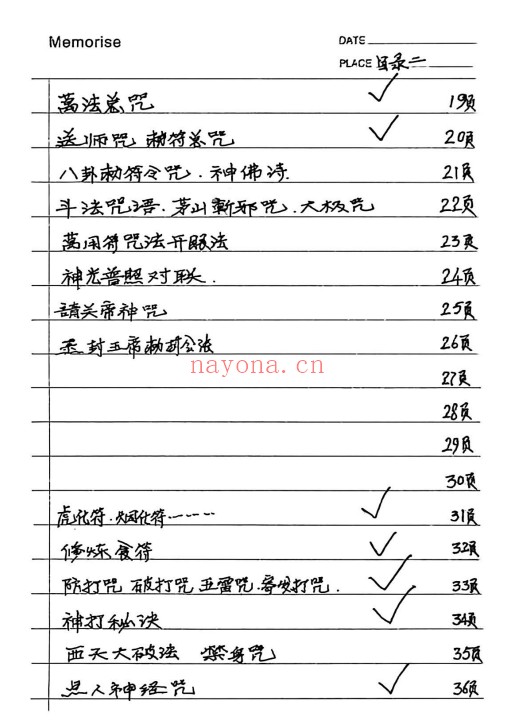 Memorise
DATE
PLACE 目录二
萬法总咒 19页
送师咒 勅符总咒 20页
八卦勅符令咒.神佛诗. 21页
斗法咒语.茅山斬邪咒.太极咒 22页
萬用符咒法开眼法 23页
神光普照对联. 24页
請关帝神咒 25页
封玉帝勅封公法 26页
nayona.cn
27页
28页
29页
30页
虎化符.烟化符---- 31页
修炼食符 32页
防打咒 破打咒 五雷咒.打咒. 33页
神打秘诀 34页
西天大破法 禁身咒 35页
点人神经咒 36页